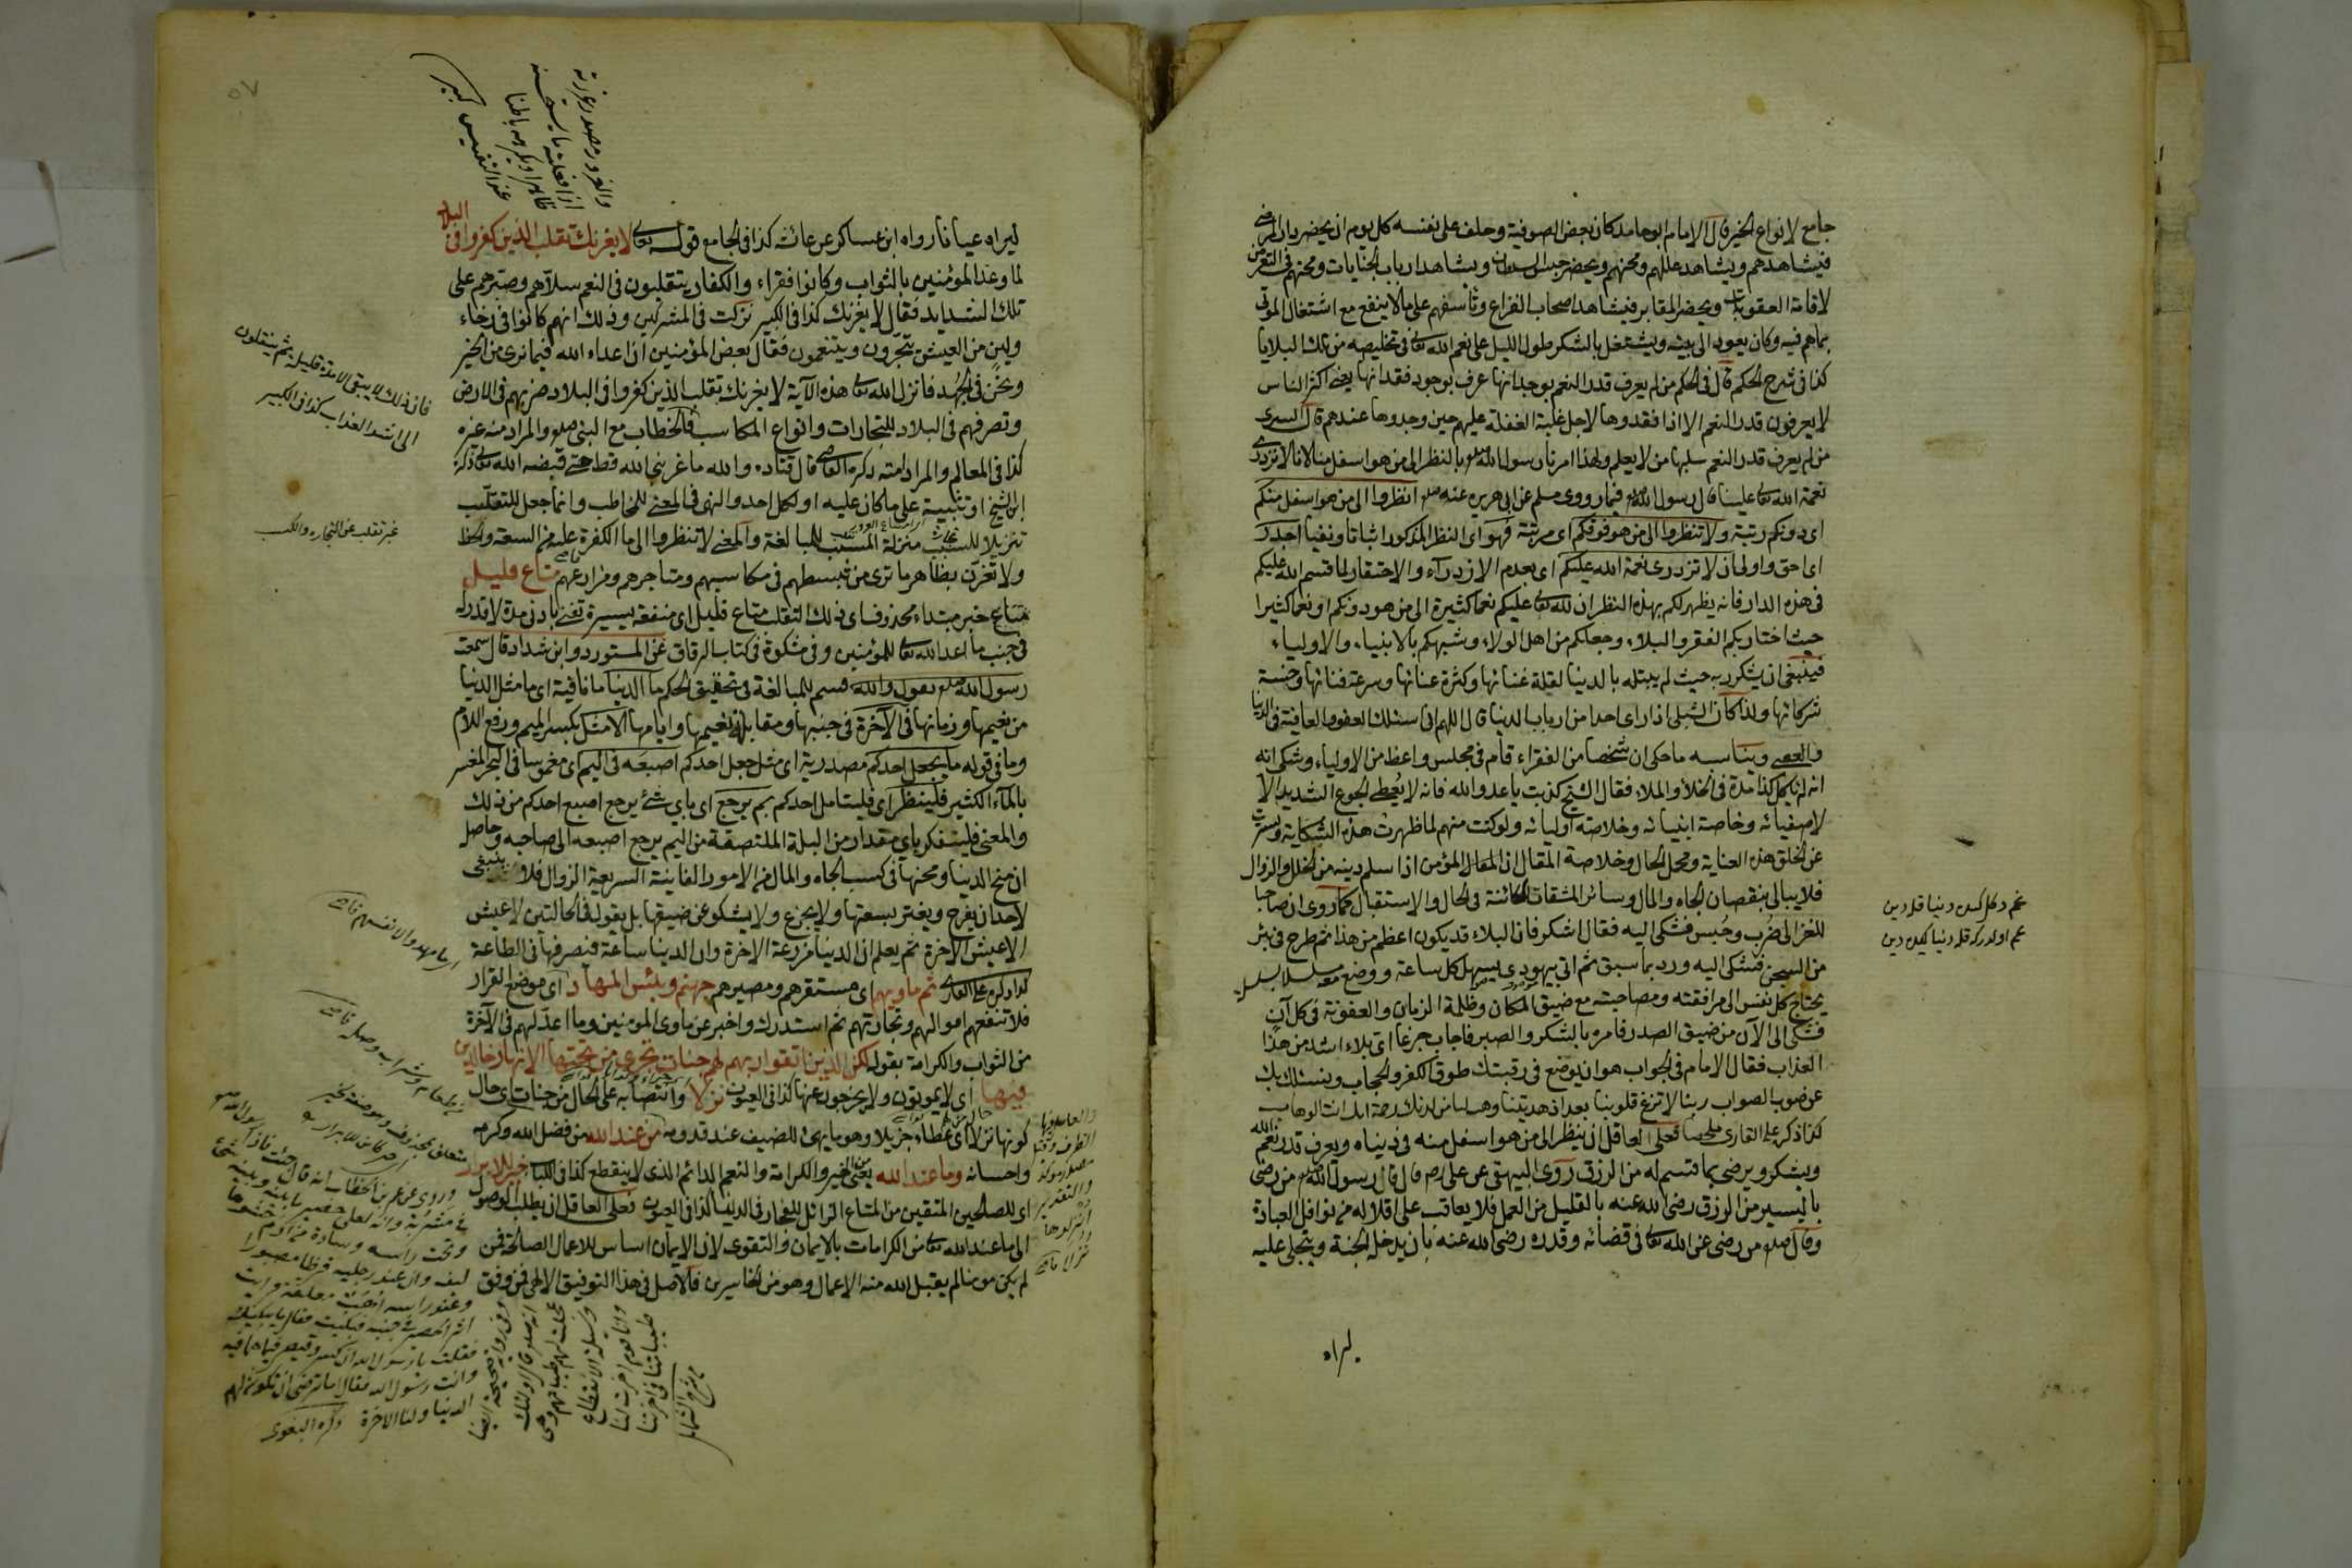 جامع لانواع الخير قال الامام ابو حامد كان بعض الصوفية وحلف على نفسه كل يوم ان يحضر دار المرضى
فيشاهدهم ويشاهد عللهم ومحنهم ويحضر حبس السلطان ويشاهد ارباب الجنايات ومحنهم في التعرض
لاقامة العقوبات ويحضر المقابر فيشاهد اصحاب الفزاع وتأسفهم على ما لا ينفع مع اشتغال الموتى
بماهم فيه وكان يعود الى بيته ويشتغل بالشكر طول الليل على نعم الله تعالى في تخليصه من تلك البلايا
كذا في شرح الحكم قال في الحكم من لم يعرف قدر النعم بوجدانها عرف بوجود فقدانها يعنى اكثر الناس
لا يعرفون قدر النعم الا اذا فقدوها لاجل غلبة الغفلة عليهم حين وجدوها عندهم قال السرى
من لم يعرف قدر النعم سلبها من لا يعلم ولهذا امرنا رسول الله صلعم بالنظر الى من هو اسفل منا لانا لا نزدرى
نعمة الله تعالى علينا قال رسول الله صلعم فيما روى مسلم عن ابى هريرة عنه صلعم انظروا الى من هو اسفل منكم
اى دونكم رتبة ولا تنظروا الى من هو فوقكم اى مرتبة فهو اى النظر المذكور اثباتا ونفيا اجدر
اى احق واولى ان لا تزدرى نعمة الله عليكم اى بعدم الازدراء والاحتقار لما قسم الله عليكم
في هذه الدار فانه يظهر لكم بهذه النظر ان لله تعالى عليكم نعما كثيرة الى من هو دونكم او نعما كثيرا
حيث اختار بكم الفقر والبلاء وجعلكم من اهل الولاء وشبهكم بالانبياء والاولياء
فينبغى ان يشكر ربه حيث لم يبتله بالدنيا لقلة غنائها وكثرة عنائها وسرعة فنائها وخسة
شركائها ولذا كان الشبلى اذا راى احدا من ارباب الدنيا قال اللهم انى اسئلك العفو والعافية في الدنيا
والعقبى ويناسبه ما حكى ان شخصا من الفقراء قام في مجلس واعظ من الاولياء وشكى انه
انه لم ياكل كذا مدة في الخلأ والملاء فقال الشيخ كذبت يا عدو الله فانه لا يعطى الجوع الشديد الا
لاصفيائه وخاصة انبيائه وخلاصة اوليائه ولو كنت منهم لما ظهرت هذه الشكاية وسترت
عن الخلق هذه العناية ومحل الحال وخلاصة المقال ان المؤمن اذا سلم دينه من الخلل والزوال
فلا يبالى بنقصان الجاه والمال وسائر المشقات الكائنة في الحال والاستقبال كما روى ان صاحبا
للغزالى ضرب وحبس فشكى اليه فقال اشكر فان البلاء قد يكون اعظم من هذا ثم طرح في بئر
من السجن فشكى اليه ورد بما سبق ثم اتى بيهودى يسهل كل ساعة ووضع معه بسلسلة
يحتاج كل نفس الى مرافقته ومصاحبته مع ضيق المكان وظلمة الزمان والعفونة في كل آن
فشكى الى الآن من ضيق الصدر فامره بالشكر والصبر فاجاب جزعا اى بلاء اشد من هذا
العذاب فقال الامام في الجواب هو ان يوضع في رقبتك طوق الكفر والحجاب
عن صوب الصواب ربنا لا تزغ قلوبنا بعد اذ هديتنا وهب لنا من لدنك رحمة انك انت الوهاب
كذا ذكره على القارى فعلى العاقل ان ينظر الى من هو اسفل منه في دنياه ويعرف قدر نعم الله
ويشكر ويرضى بما قسم له من الرزق روى البيهقى عن على رضى قال قال رسول الله صلعم من رضى
باليسير من الرزق رضى الله عنه بالقليل من العمل فلا يعاقب على اقلاله من نوافل العبادة
وقال صلعم من رضى عن الله تعالى في قضائه وقدره رضى الله عنه بان يدخل الجنة ويتجلى عليه
ليراه
غم دكل كيدر دنيا قلدين
غم اولدركه قله دنيا كيدر دين
ليراه عيانا رواه ابن عساكر عن عائشة كذا في الجامع قوله تعالى لا يغرنك تقلب الذين كفروا في البلاد
لما وعد المؤمنين بالثواب وكانوا فقراء والكفار يتقلبون في النعم سلاهم وصبرهم على
تلك الشدايد فقال لا يغرنك كذا في الكبير نزلت في المشركين وذلك انهم كانوا في رخاء
ولين من العيش يتجرون ويتنعمون فقال بعض المؤمنين ان اعداء الله فيما نرى من الخير
ونحن في الجهد فانزل الله تعالى هذه الآية لا يغرنك تقلب الذين كفروا في البلاد ضربهم في الارض
وتصرفهم في البلاد للتجارات وانواع المكاسب فالخطاب مع النبى صلعم والمراد منه غيره
كذا في المعالم والمراد امته ذكره القاضى قال قتادة والله ما غر نبى الله قط حتى قبضه الله تعالى ذكره
ابو الشيخ او تثبيته على ما كان عليه او لكل احد والنهى في المعنى للمخاطب وانما جعل للتقلب
تنزيلا للسبب منزلة المسبب للمبالغة والمعنى لا تنظروا الى ما الكفرة عليه من السعة والحظ
ولا تغتر بظاهر ما ترى من تبسطهم في مكاسبهم ومتاجرهم ومزارعهم متاع قليل
متاع خبر مبتداء محذوف اى ذلك التقلب متاع قليل اى منفعة يسيرة تغنى بادنى مدة لا قدر له
في جنب ما اعد الله تعالى للمؤمنين وفى مشكوة في كتاب الرقاق عن المستورد ابن شداد قال سمعت
رسول الله صلعم يقول والله قسم للمبالغة في تحقيق الحكم ما الدنيا ما نافية اى ما مثل الدنيا
من نعيمها وزمانها في الآخرة في جنبها ومقابلة نعيمها وايامها الا مثل بكسر الميم ورفع اللام
وما في قوله ما يجعل احدكم مصدرية اى مثل جعل احدكم اصبعه في اليم اى مغموسا في البحر المفسر
بالماء الكثير فلينظر اى فليتأمل احدكم بم يرجع اى باى شئ يرجع اصبع احدكم من ذلك
والمعنى فليتفكر باى مقدار من البلة الملتصقة من اليم يرجع اصبعه الى صاحبه وحاصله
ان منح الدنيا ومحنها في كسب الجاه والمال من الامور الفانية السريعة الزوال فلا ينبغى
لاحد ان يفرح ويغتر بسعتها ولا يجزع ولا يشكو عن ضيقها بل يقول في الحالتين لا عيش
الا عيش الآخرة ثم يعلم ان الدنيا مزرعة الآخرة وان الدنيا ساعة فنصرفها في الطاعة
كذا ذكره على القارى ثم ماويهم اى مستقرهم ومصيرهم جهنم وبئس المهاد اى موضع القرار
فلا تنفعهم اموالهم وتجارتهم ثم استدرك واخبر عن ماوى المؤمنين وما اعد لهم في الآخرة
من الثواب والكرامة بقوله لكن الذين اتقوا ربهم لهم جنات تجرى من تحتها الانهار خالدين
فيها اى لا يموتون ولا يخرجون عنها كذا في العيون نزلا وانتصابه على الحال من جنات اى حال
كونها نزلا اى عطاء جزيلا وهو ما يهيئ للضيف عند قدومه من عند الله من فضل الله وكرمه
واحسانه وما عند الله يعنى من الخير والكرامة والنعم الدائم الذى لا ينقطع كذا في اللباب خير للابرار
اى للصالحين المتقين من المتاع الزائل للفجار في الدنيا كذا في العيون فعلى العاقل ان يطلب الوصول
الى ما عند الله تعالى من الكرامات بالايمان والتقوى لان الايمان اساس للاعمال الصالحة فمن
لم يكن مؤمنا لم يقبل الله منه الاعمال وهو من الخاسرين فالاصل في هذا التوفيق الالهى فمن وفق
فان ذلك لا يبقى الا مدة قليلة ثم ينتقلون
الى اشد العذاب كذا في الكبير
عبر تقلب عن التجارة والكسب
وروى عن عمر بن الخطاب انه قال جئت فاذا رسول الله صلعم
في مشربة وانه لعلى حصير ما بينه وبينه شئ
وتحت راسه وسادة من ادم حشوها
ليف وان عند رجليه قرظا مصبورا
وعند راسه اهب معلقة فرايت
اثر الحصير في جنبه فبكيت فقال ما يبكيك
فقلت يا رسول الله ان كسرى وقيصر فيما هما فيه
وانت رسول الله فقال اما ترضى ان تكون لهم
الدنيا ولنا الآخرة ذكره البغوى